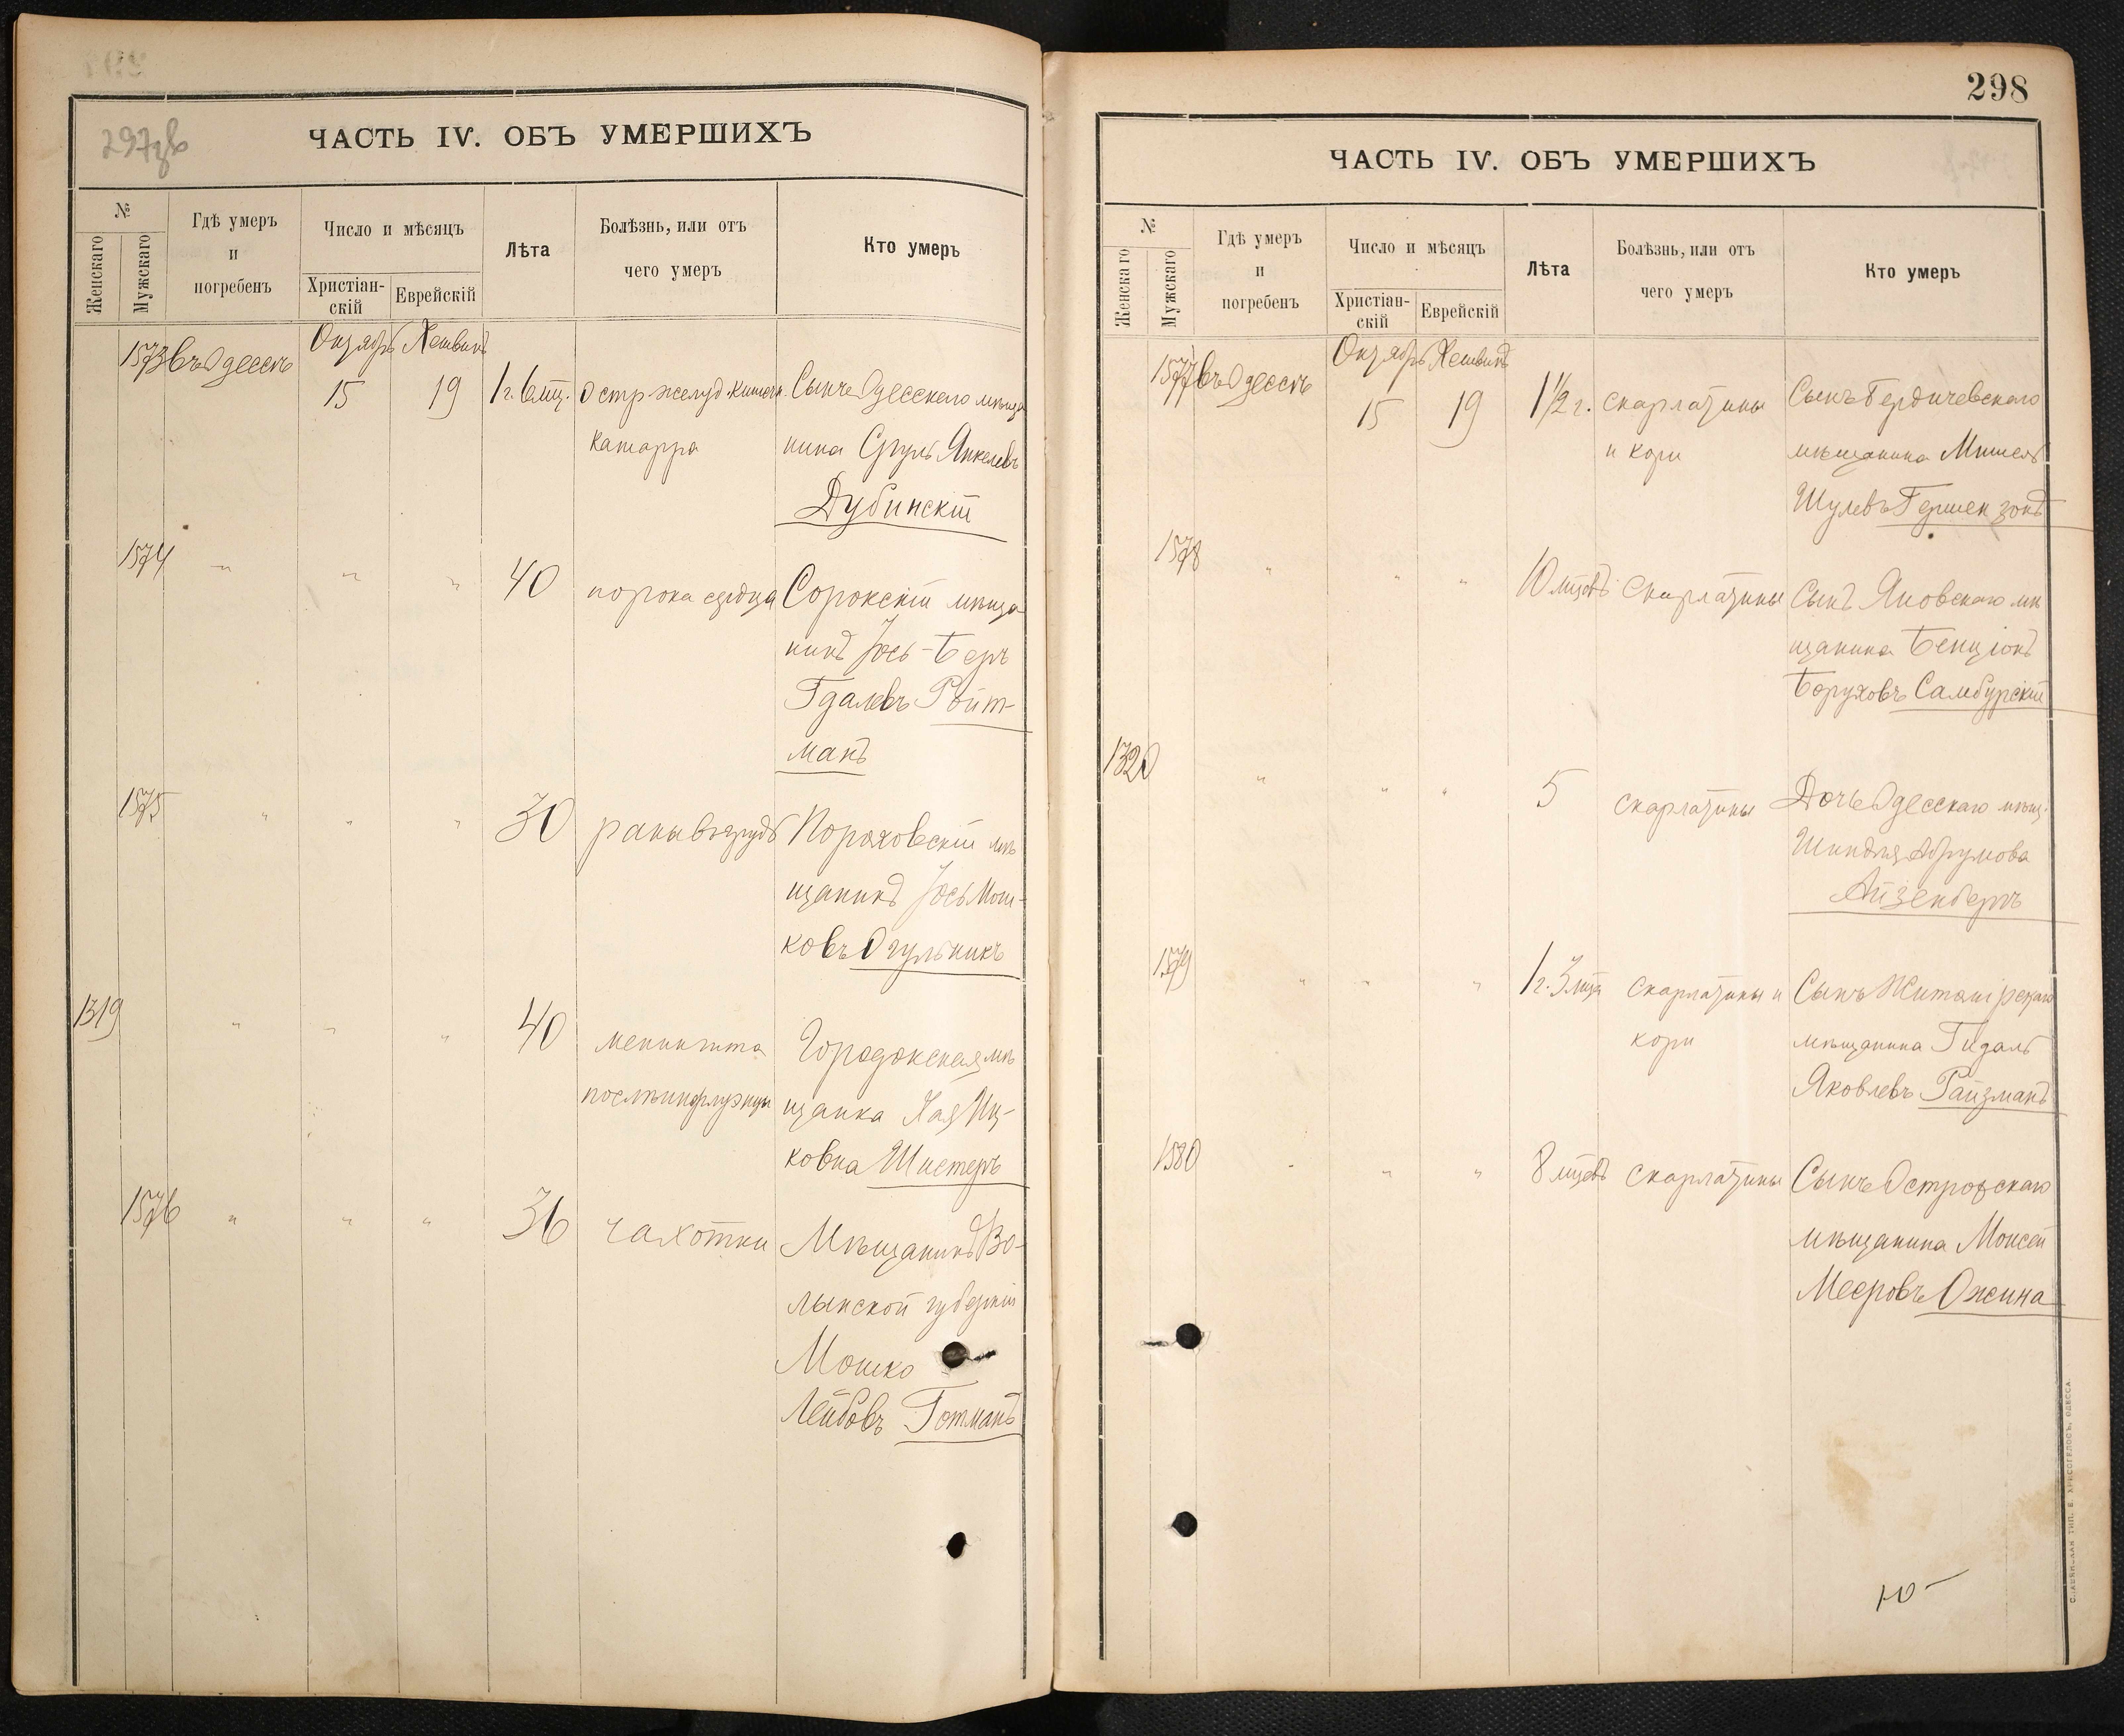 297об
ЧАСТЬ IV. ОБЪ УМЕРШИХЪ
№
Женскаго
Мужскаго
Гдѣ умеръ
и
погребенъ
Число и мѣсяцъ
Христіан-
скій
Еврейскій
Лѣта
Болѣзнь, или отъ
чего умеръ
Кто умеръ
1573 въ Одессѣ Октябрь Хешванъ
15 19 1 г. 6 мц. Остр желуд. кишечн. Сынъ Одесскаго мѣща
катарра нина Сруль Янкелевъ
Дубинскій
1574 " " " 40 порока сердца Сорокскій мѣща
нинъ Іось-Беръ
Гдалевъ Ройт-
манъ
1575 " " " 30 раны въ грудь Пораховскій мѣ
щанинъ Іось Мош-
ковъ Огульникъ
1319 " " " 40 менингита Городокская мѣ
послѣ инфлуэнцы щанка Хая Иц-
ковна Шистеръ
1576 " " " 36 чахотки Мѣщанинъ Во-
лынской губерніи
Мошко
Лейбовъ Готманъ
298
ЧАСТЬ IV. ОБЪ УМЕРШИХЪ
№
Женскаго
Мужскаго
Гдѣ умеръ
и
погребенъ
Число и мѣсяцъ
Христіан-
скій
Еврейскій
Лѣта
Болѣзнь, или отъ
чего умеръ
Кто умеръ
1577 въ Одессѣ Октябрь Хешванъ
15 19 1 1/2 г. скарлатины Сынъ Бердичевскаго
и кори мѣщанина Мишель
Шулевъ Гершензонъ
1578 " " " 10 мцевъ скарлатины Сынъ Яновскаго мѣ
щанина Бенціонъ
Боруховъ Самбурскій
1320 " " " 5 скарлатины Дочь Одесскаго мѣщ.
Шиндля Абрумова
Айзенбергъ
1579 " " " 1 г. 3 мца скарлатины и Сынъ Житомірскаго
кори мѣщанина Гидаль
Яковлевъ Райзманъ
1580 " " " 8 мцевъ скарлатины Сынъ Островскаго
мѣщанина Моисей
Мееровъ Ожина
10-